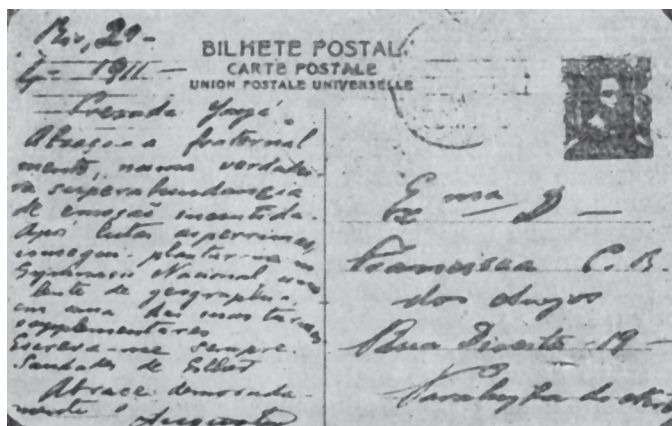 Rio, 29-
4- 1911 -
BILHETE POSTAL
CARTE POSTALE
UNION POSTALE UNIVERSELLE
Prezada Yayá,
Abraço-a fraternal
mente, numa verdadei-
ra superabundancia
de emoção incontida.
Após lutas asperrimas,
consegui plantar-me no
Gymnasio Nacional como
lente de geographia,
em uma das suas turmas
supplementares
Escreva-me sempre.
Saudades de Esther
Abrace demorada-
mente o Augusto
Exma D -
Francisca C. B.
dos Anjos
Rua Direita - 19 -
Parahyba do Norte